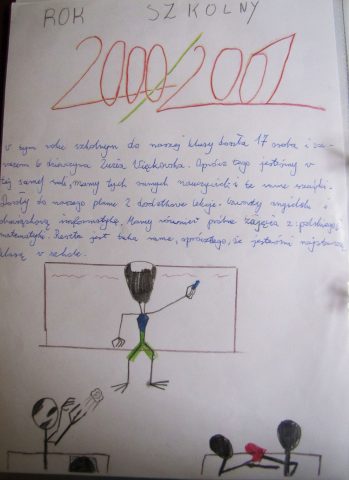 ROK SZKOLNY
2000/2001
W tym roku szkolnym do naszej klasy doszła 17 osoba i za-
razem 6 dziewczyna Zuzia Więckowska. Oprócz tego jesteśmy w
tej samej sali, mamy tych samych nauczycieli i te same
Doszły do naszego planu 2 dodatkowe lekcje: angielski i
obowiązkowa informatyka. Mamy również próbne zajęcia z: polskiego i
matematyki. Reszta jest taka sama, oprócz tego, że jesteśmy najstarszą
klasą w szkole.